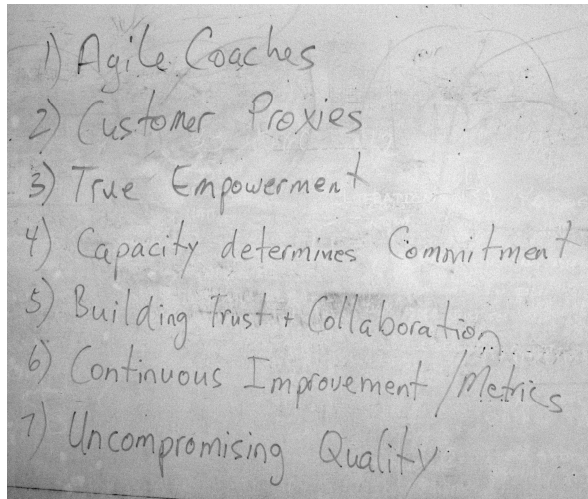 1) Agile Coaches
2) Customer Proxies
3) True Empowerment
4) Capacity determines Commitment
5) Building Trust + Collaboration
6) Continuous Improvement / Metrics
7) Uncompromising Quality